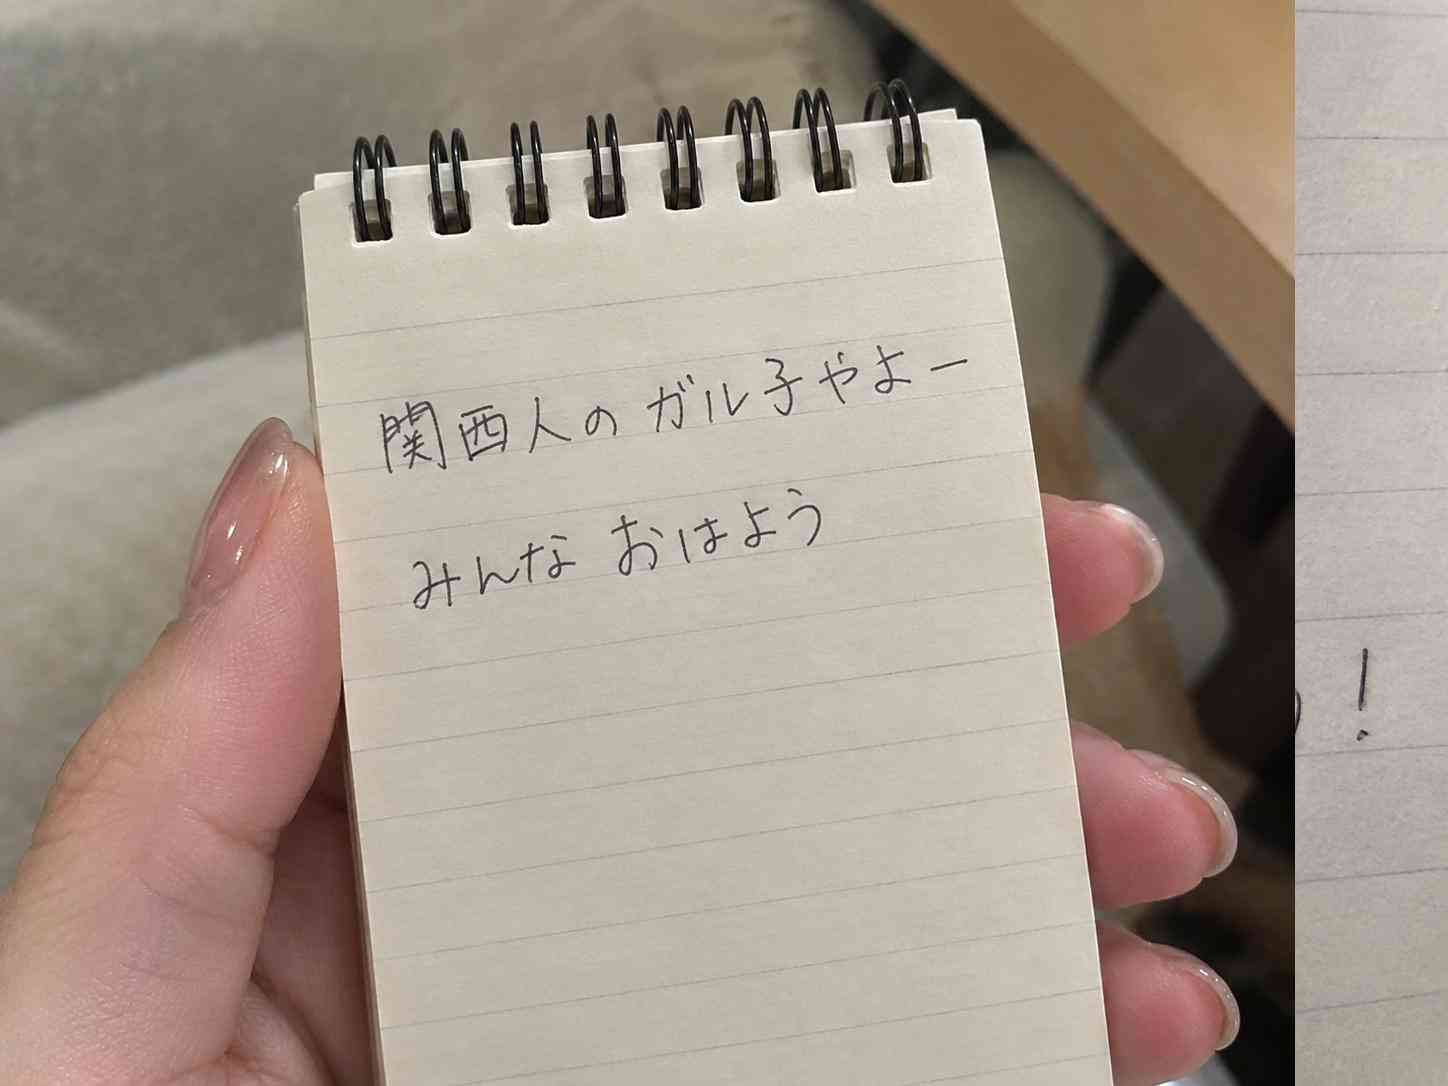 関西人のガル子やよー
みんな おはよう
!